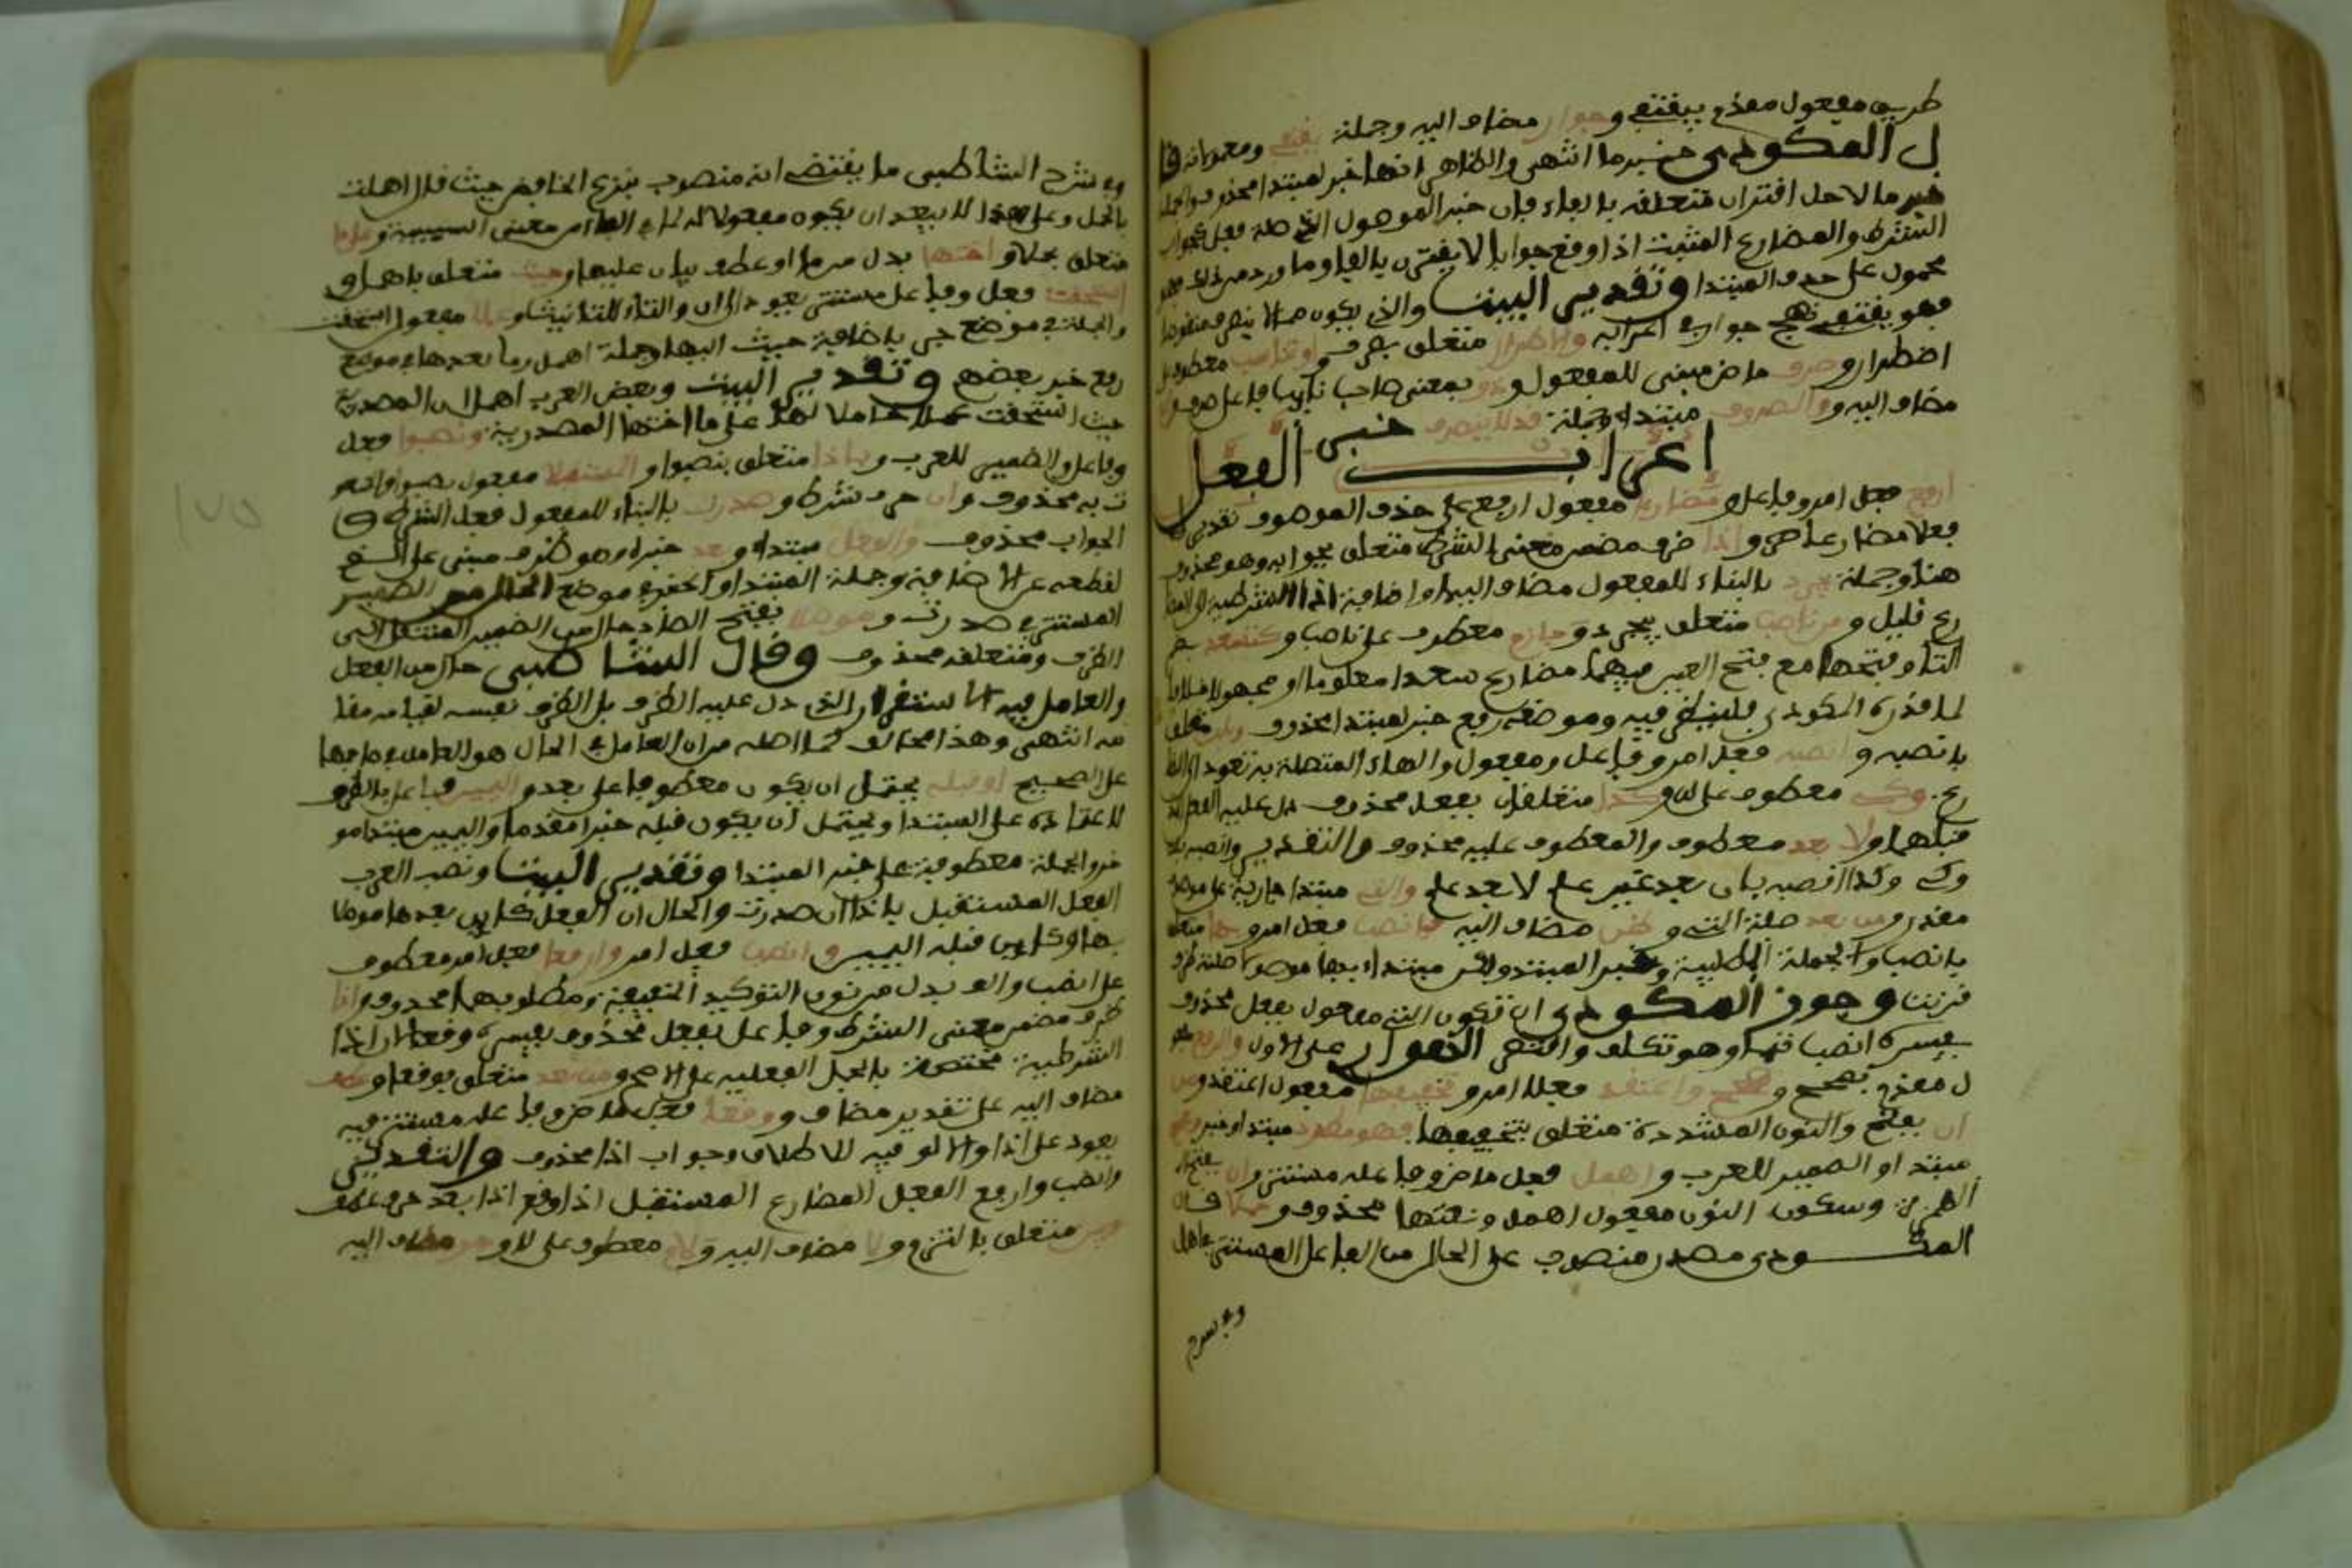 طريق مفعول مقدم بيقتفي وجوار مضاف اليه وجملة يقتفي ومعمولاته قا
ل المكودي خبر ما انتهى والظاهر انها خبر لمبتدا محذوف والجملة
خبر ما لاجل اقتران متعلقه بالفاء فان خبر الموصول الذي صلته فعل كجواب
الشرط والمضارع المثبت اذا وقع جوابا لا يقترن بالفاء وما ورد من ذلك فهو
محمول على حذف المبتدا وتقدير البيت والذي يكون منه الاسم منقوصا
فهو يقتفي نهج جوار في اعرابه ولاضطرار متعلق بصرف او تناسب معطوف على
اضطرار وصرف ماض مبني للمفعول وذو بمعنى صاحب نايب فاعل صرف
مضاف اليه والمصروف مبتدا وجملة قد لا ينصرف خبره
اعراب الفعل
ارفع فعل امر وفاعل ومضارعا مفعول ارفع على حذف الموصوف تقديره
فعلا مضارعا واذا ظرف مضمر معنى الشرط متعلق بجوابه وهو محذوف
هنا وجملة يجرد بالبناء للمفعول مضاف اليها واضافة اذا الشرطية الى المضا
رع قليل ومن ناصب متعلق بيجرد وجازم معطوف على ناصب وكتسعد بضم
التاء وفتحها مع فتح العين فيهما مضارع سعد معلوما او مجهولا خلافا
لما قدره المكودي فلينظر فيه وموضعه رفع خبر لمبتدا محذوف وبلن متعلق
بانصبه وانصبه فعل امر وفاعل ومفعول والهاء المتصلة به تعود الى المضا
رع وكي معطوف على لن وكذا متعلقان بفعل محذوف دل عليه الفعل
قبلهما ولا بعد معطوف والمعطوف عليه محذوف والتقدير وانصبه بلن
وكي وكذا انصبه بان بعد غير علم لا بعد علم والتي مبتدا جارية على موصوف
مقدر ومن بعد صلة التي وظن مضاف اليه فانصب فعل امر وبها متعلق
بانصب والجملة الطلبية خبر المبتدا
قرنت وجوز المكودي ان تكون التي مفعول بفعل محذوف
يفسره انصب بها وهو تكلف واقتصر الهواري على الاول والرفع مفعو
ل مقدم بصحح وصحح واعتقد فعلا امر وتخفيفها مفعول اعتقد ومن
ان بفتح والنون المشددة متعلق بتخفيفها فهو مطرد مبتدا وخبر وبعضهم
مبتدا والضمير للعرب واهمل فعل ماض وفاعله مستتر وان بفتح
الهمزة وسكون النون مفعول اهمل ونعتها محذوف وحملا قال
المكودي مصدر منصوب على الحال من الفاعل المستتر باهمل
وفي شرح
وفي شرح الشاطبي ما يقتضي انه منصوب بنزع الخافض حيث قال اهملت
بالحمل وعلى هذا لا يبعد ان يكون مفعولا له لما في الهاء من معنى السببية وعلى ما
متعلق بحملا واختها بدل من ما او عطف بيان عليها وحيث متعلق باهمل و
استحقت فعل وفاعل مستتر يعود الى ان والتاء للتانيث وعملا مفعول استحقت
والجملة في موضع جر باضافة حيث اليها وجملة اهمل وما بعدها في موضع
رفع خبر بعضهم وتقدير البيت وبعض العرب اهمل ان المصدرية
حيث استحقت عملا حاملا لها على ما اختها المصدرية ونصبوا فعل
وفاعل والضمير للعرب وباذا متعلق بنصبوا والمستقبلا مفعول نصبوا
ت به محذوف وان حرف شرط وصدرت بالبناء للمفعول فعل الشرط و
الجواب محذوف والفعل مبتدا وبعد خبره وهو ظرف مبني على الضم
لقطعه عن الاضافة وجملة المبتدا والخبر في موضع الحال من الضمير
المستتر في صدرت وموصلا بفتح الصاد حال من الضمير المنتقل الى
الظرف ومتعلقه محذوف وقال الشاطبي حال من الفعل
والعامل فيه الاستقرار الذي دل عليه الظرف بل الظرف نفسه لقيامه مقا
مه انتهى وهذا مخالف لما اصله من ان العامل في الحال هو العامل في صاحبها
على الصحيح او قبله يحتمل ان يكون معطوفا على بعد واليمين فاعل بالظرف
لاعتماده على المبتدا ويحتمل ان يكون قبله خبرا مقدما واليمين مبتدا مو
خر والجملة معطوفة على خبر المبتدا وتقدير البيت ونصب العرب
الفعل المستقبل باذا ان صدرت والحال ان الفعل كاين بعدها موصلا
بها او كاين قبله اليمين وانصب فعل امر وارفعا فعل امر معطوف
على انصب والالف بدل من نون التوكيد الخفيفة ومطلوبهما محذوف واذا
ظرف مضمر معنى الشرط وفاعل بفعل محذوف يفسره وقعا لان اذا
الشرطية مختصة بالجمل الفعلية على الاصح ومن بعد متعلق بوقعا وعطف
مضاف اليه على تقدير مضاف ووقعا فعل ماض وفاعله مستتر فيه
يعود على اذا والالف فيه للاطلاق وجواب اذا محذوف والتقدير
وانصب وارفع الفعل المضارع المستقبل اذا وقع اذا بعد حرف عطف
وبين متعلق بالتزم ولا مضاف اليه ولام معطوف على لا وجر مضاف اليه
١٧٥